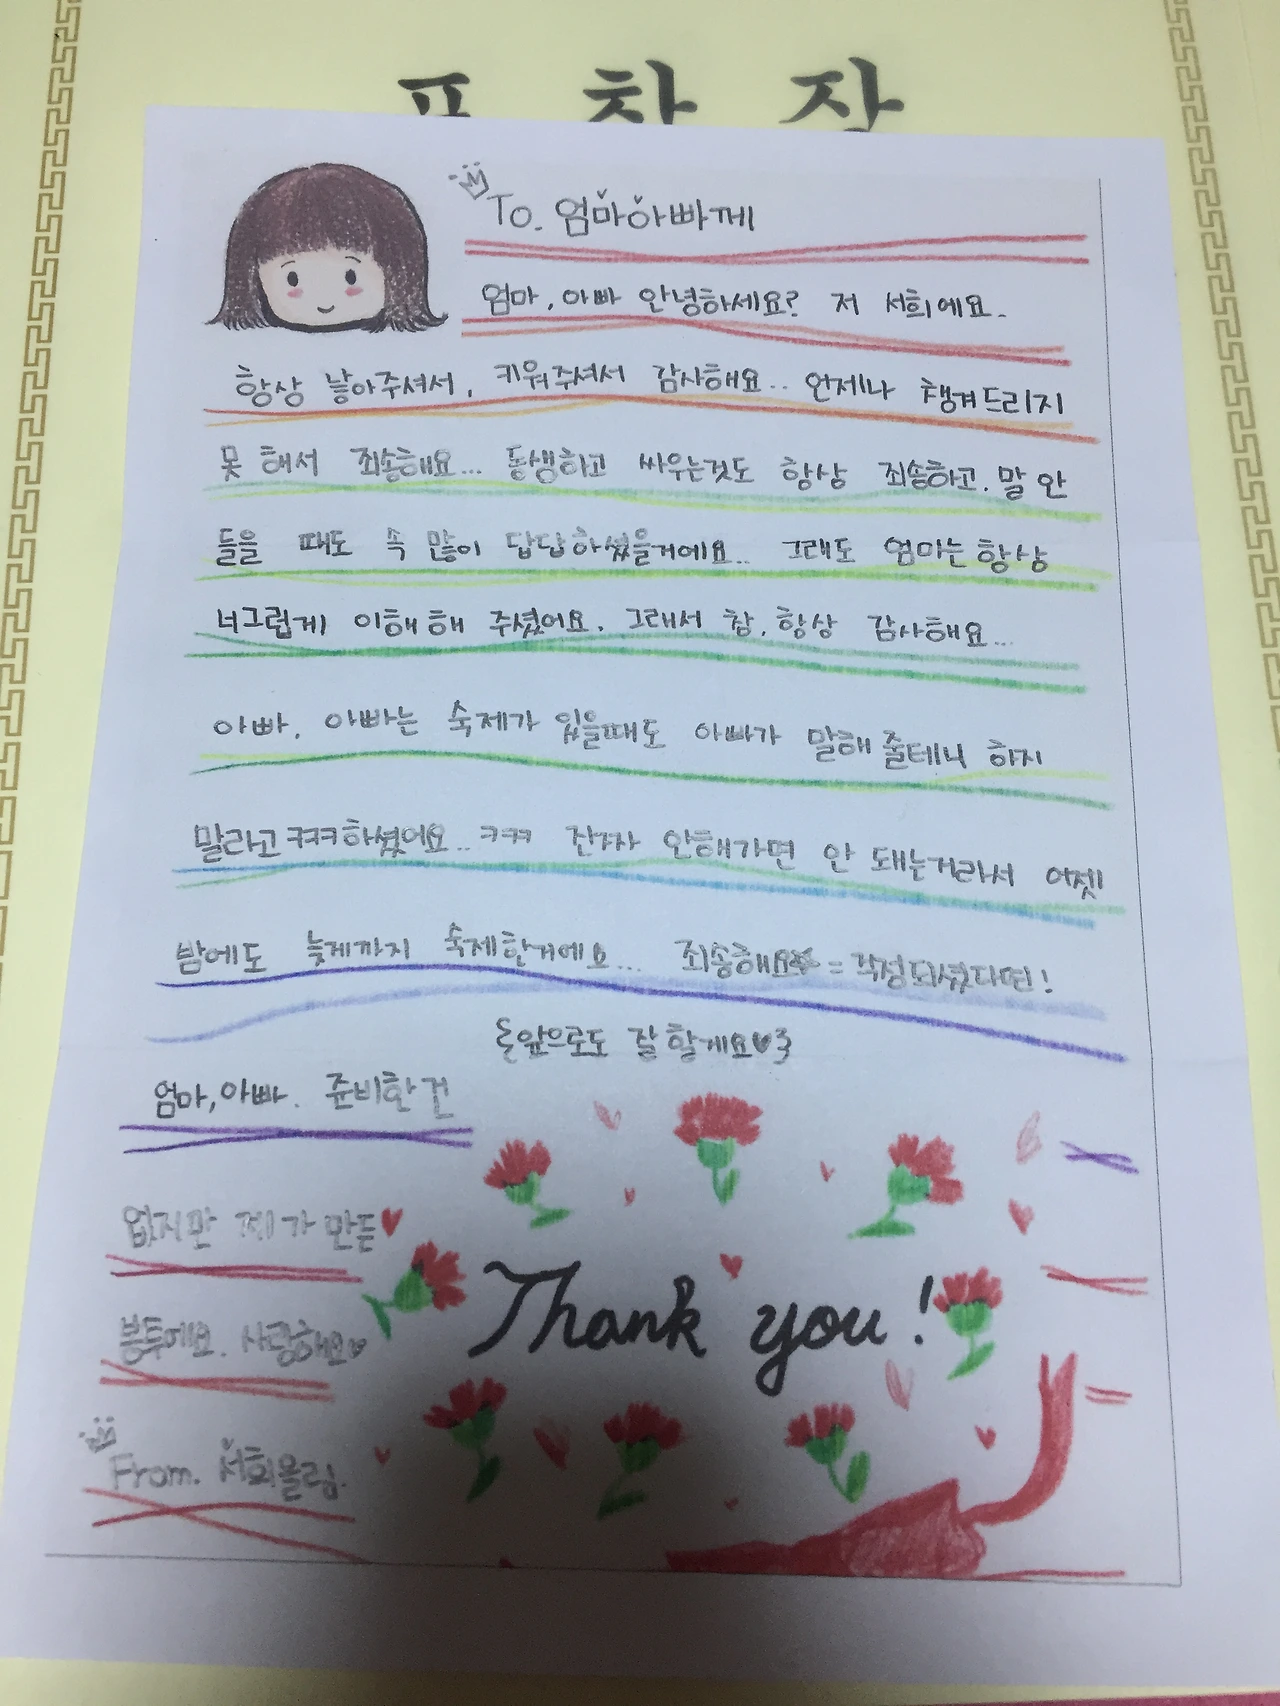 표 창 장
To. 엄마아빠께
엄마, 아빠 안녕하세요? 저 서희에요.
항상 낳아주셔서, 키워주셔서 감사해요.. 언제나 챙겨드리지
못 해서 죄송해요... 동생하고 싸우는것도 항상 죄송하고. 말 안
들을 때도 속 많이 답답하셨을거에요.. 그래도 엄마는 항상
너그럽게 이해해 주셨어요. 그래서 참, 항상 감사해요...
아빠, 아빠는 숙제가 있을때도 아빠가 말해 줄테니 하지
말라고 ㅋㅋㅋ하셨어요.. ㅋㅋㅋ 진짜 안해가면 안 돼는거라서 어젯
밤에도 늦게까지 숙제한거에요... 죄송해요 = 걱정되셨다면!
{앞으로도 잘 할게요♥}
엄마, 아빠. 준비한 건
없지만 제가 만든♥
봉투에요. 사랑해요♥
Thank you!
From. 서희올림.